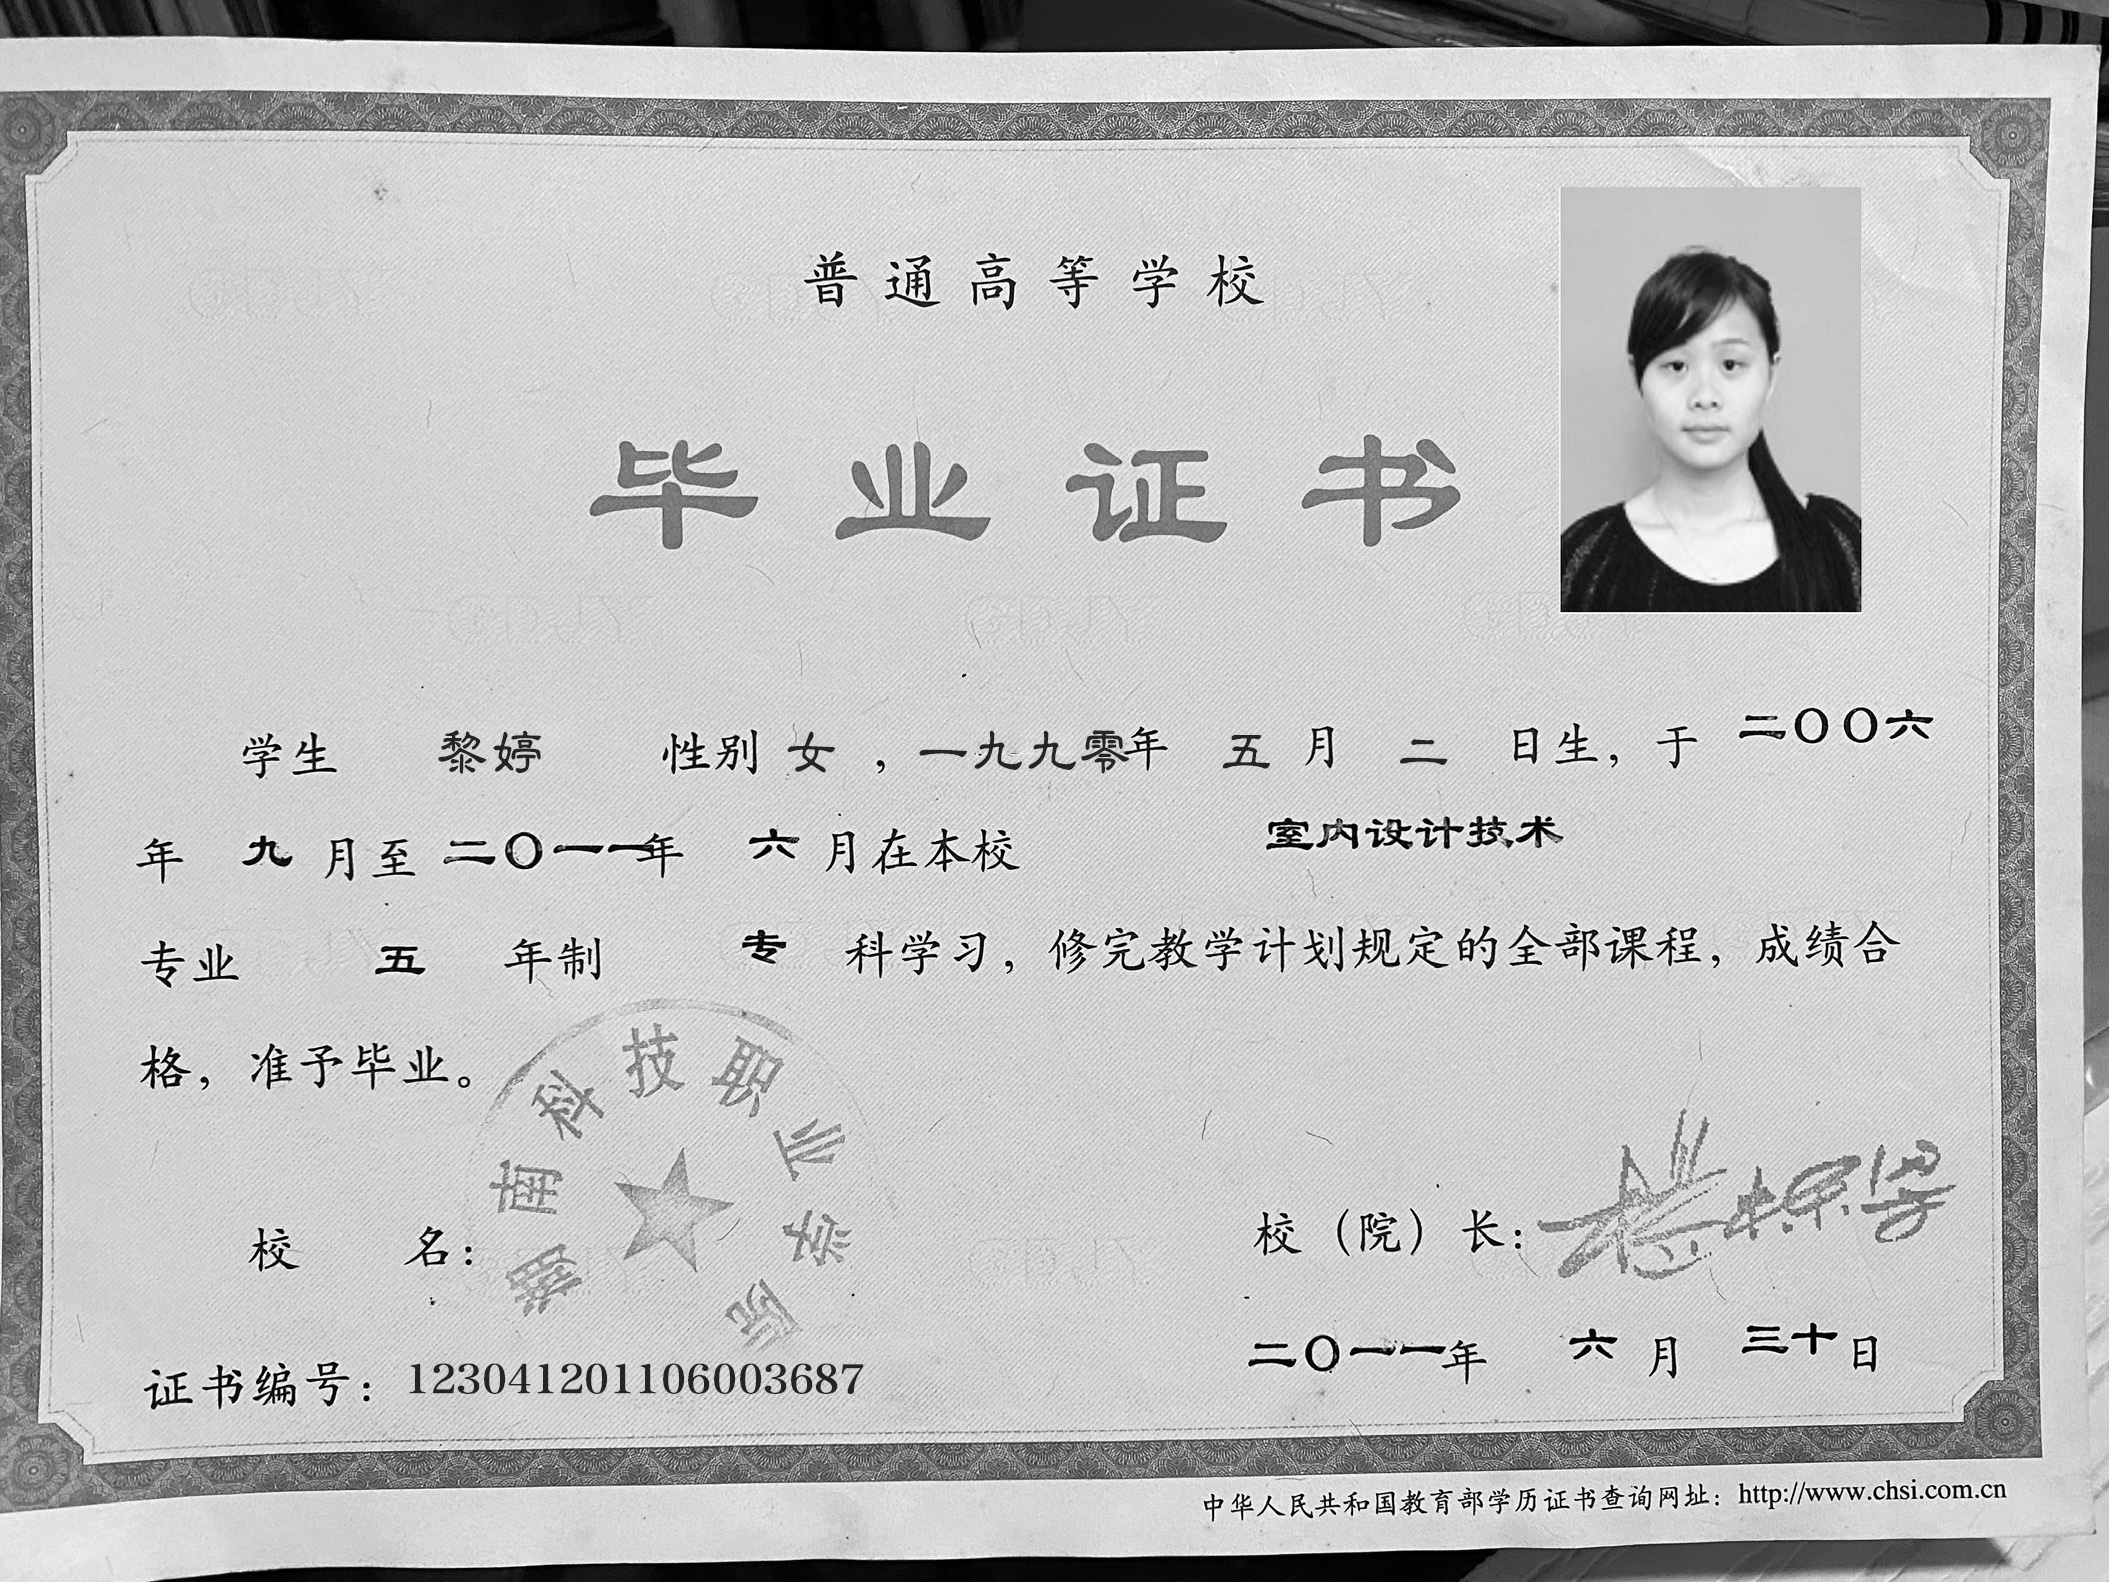 普通高等学校
毕业证书
学生 黎婷 性别 女 ，一九九零年 五 月 二 日生，于 二〇〇六
年 九 月至 二〇一一年 六 月在本校 室内设计技术
专业 五 年制 专 科学习，修完教学计划规定的全部课程，成绩合
格，准予毕业。
湖南科技职业学院
校 名：
校（院）长：
二〇一一年 六 月 三十日
证书编号：123041201106003687
中华人民共和国教育部学历证书查询网址：http://www.chsi.com.cn